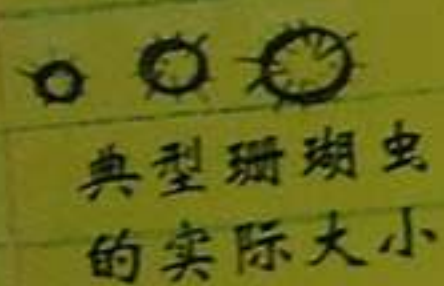 典型珊瑚虫
的实际大小